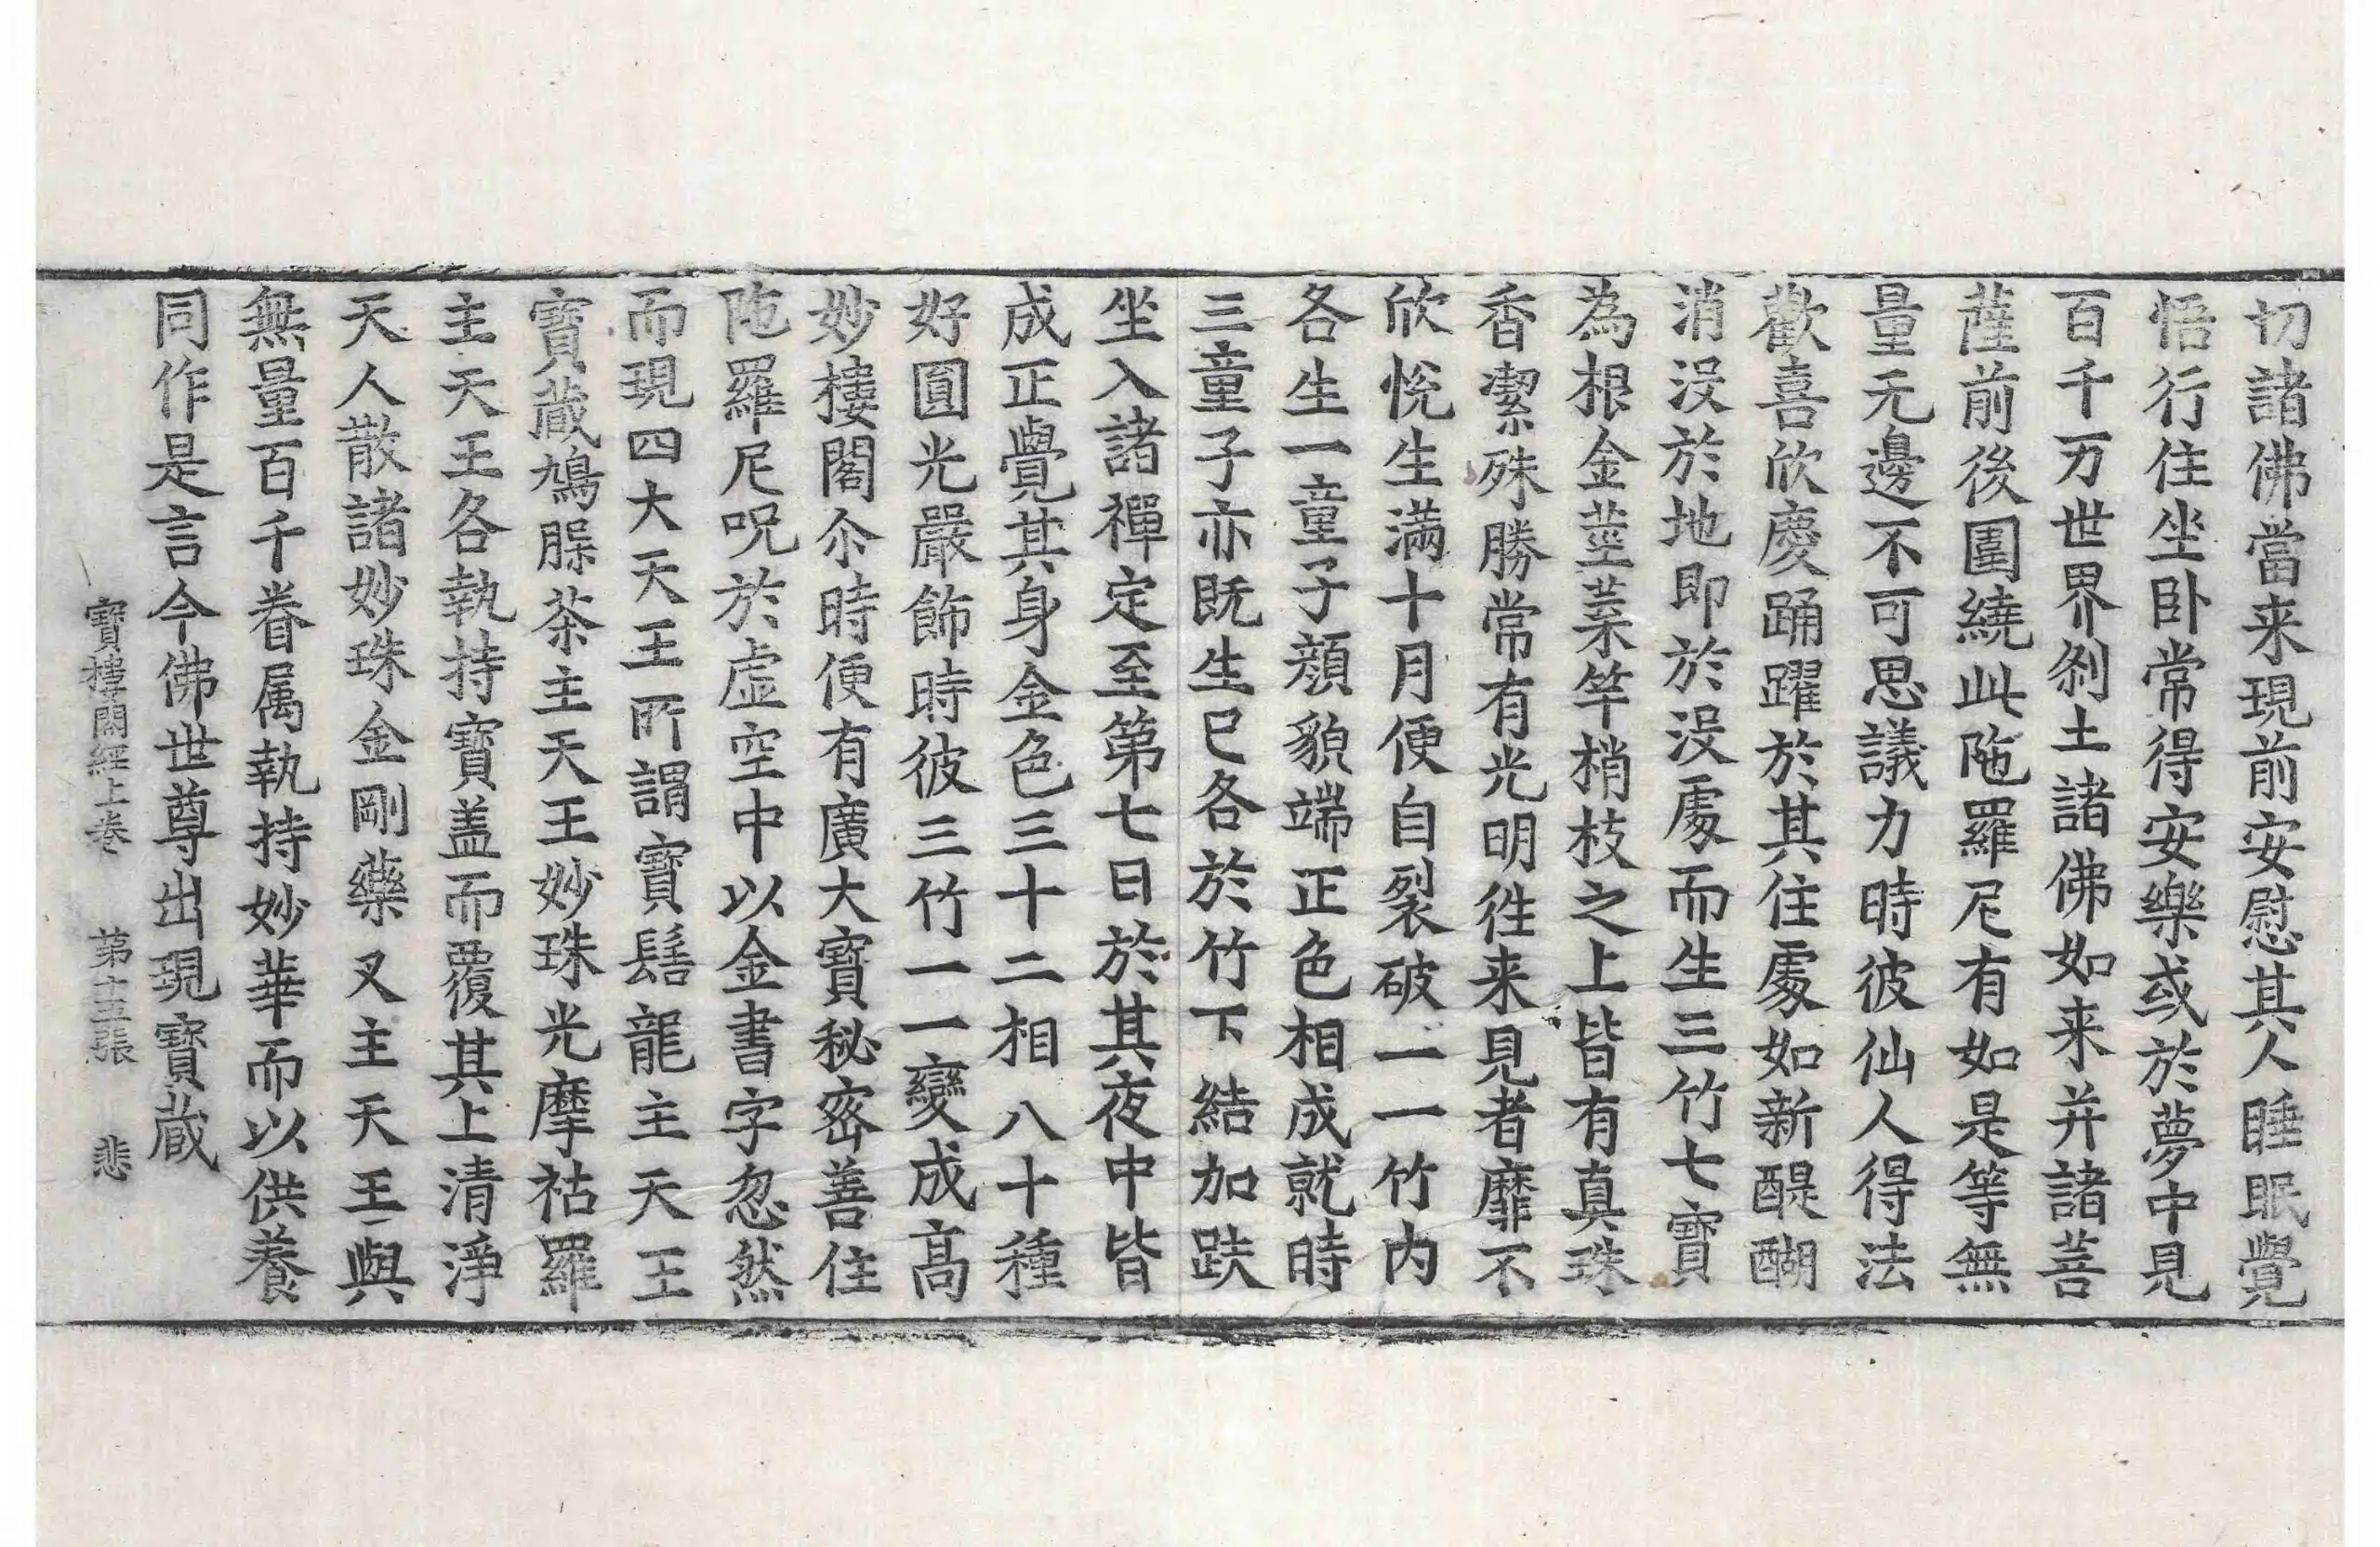 切諸佛當来現前安慰其人睡眠覺
悟行住坐卧常得安樂或於夢中見
百千万世界刹土諸佛如来并諸菩
薩前後圍繞此陁羅尼有如是等無
量无邊不可思議力時彼仙人得法
歡喜欣慶踊躍於其住處如新醍醐
消没於地即於没處而生三竹七寶
為根金莖葉竿梢枝之上皆有真珠
香潔殊勝常有光明徃来見者靡不
欣悅生滿十月便自裂破一一竹内
各生一童子顔貌端正色相成就時
三童子亦既生已各於竹下結加趺
坐入諸禪定至第七日於其夜中皆
成正覺其身金色三十二相八十種
好圓光嚴飾時彼三竹一一變成高
妙樓閣尒時便有廣大寶秘密善住
陁羅尼呪於虛空中以金書字忽然
而現四大天王所謂寶髻龍主天王
寶蔵鳩脲茶主天王妙珠光摩祜羅
主天王各執持寶盖而覆其上清淨
天人散諸妙珠金剛藥叉主天王與
無量百千眷属執持妙華而以供養
同作是言今佛世尊出現寶蔵
寶樓閣經上卷 第十五張 悲